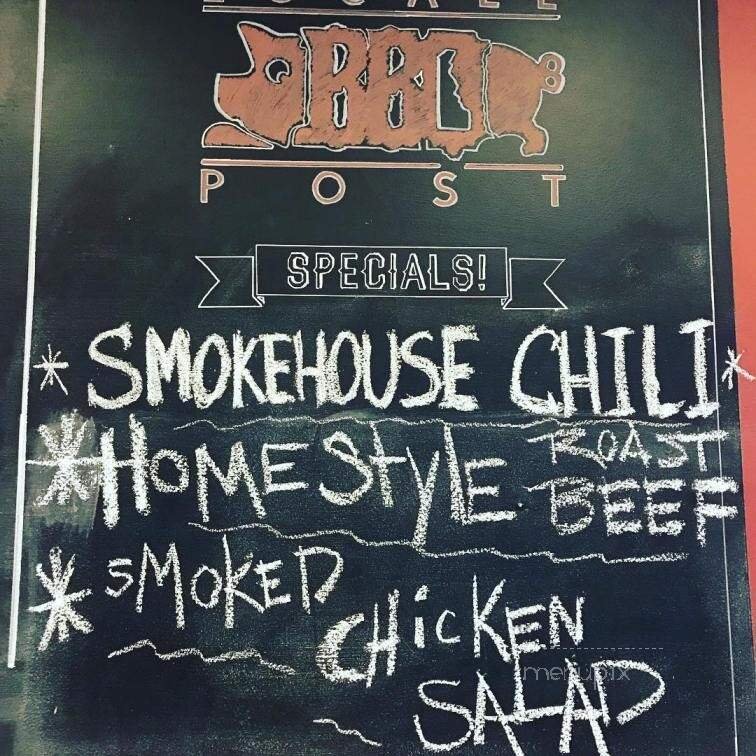 LOCALE
BBQ
POST
SPECIALS!
* SMOKEHOUSE CHILI *
* HOMESTYLE ROAST BEEF
* SMOKED CHICKEN SALAD
menupix